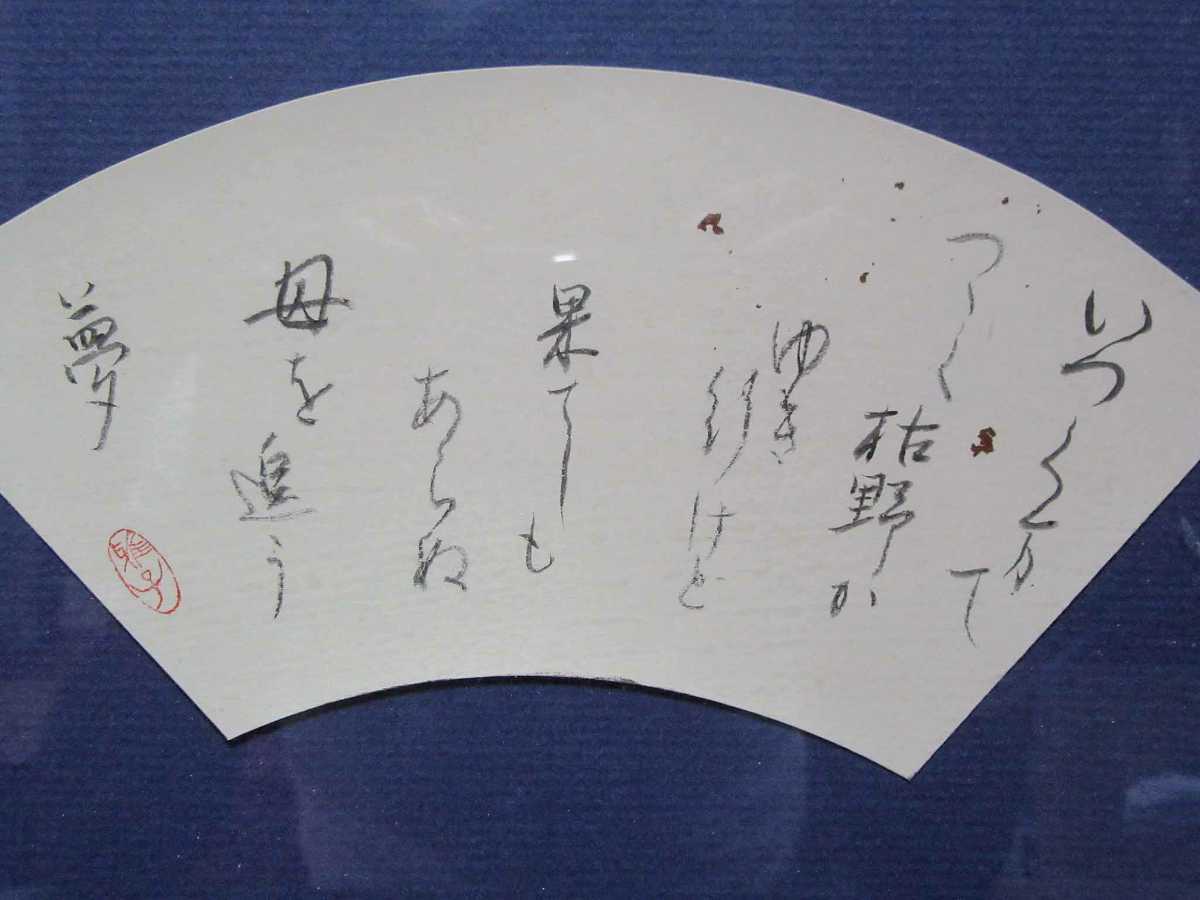 いつくまて
つゝく
枯野か
ゆき
行けと
果てしも
あらぬ
母を追う
夢